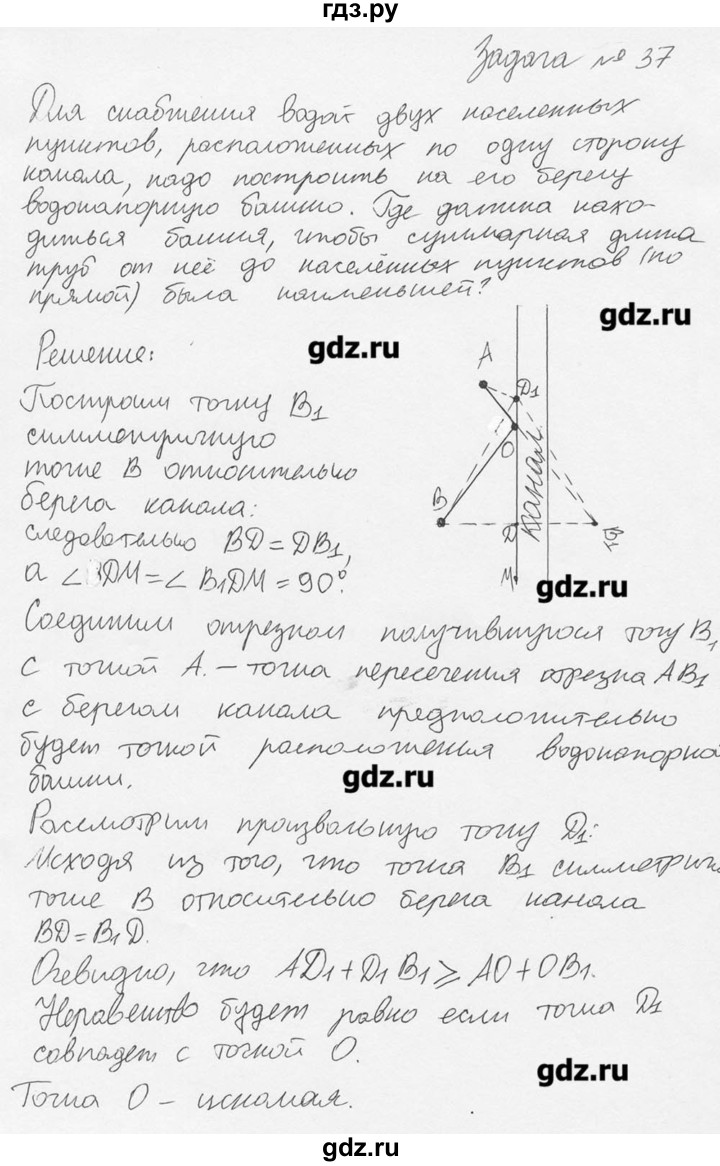 гдз.ру
Задача № 37
Для снабжения водой двух населенных
пунктов, расположенных по одну сторону
канала, надо построить на его берегу
водонапорную башню. Где должна нахо-
диться башня, чтобы суммарная длина
труб от неё до населённых пунктов (по
прямой) была наименьшей?
gdz.ru
Решение:
gdz.ru
Построим точку B1
симметричную
точке B относительно
берега канала:
следовательно BD = DB1,
а ∠BDM = ∠B1DM = 90°.
A
D1
O
канал
B
D
B1
M
gdz.ru
Соединим отрезком получившуюся точу B1
с точкой A. – точка пересечения отрезка AB1
с берегом канала предположительно
будет точкой расположения водонапорной
башни.
gdz.ru
Рассмотрим произвольную точку D1:
Исходя из того, что точка B1 симметричн
точке B относительно берега канала
BD = B1D.
Очевидно, что AD1 + D1B1 ⩾ AO + OB1.
Неравенство будет равно если точка D1
совпадет с точкой O.
gdz.ru
Точка O – искомая.
gdz.ru